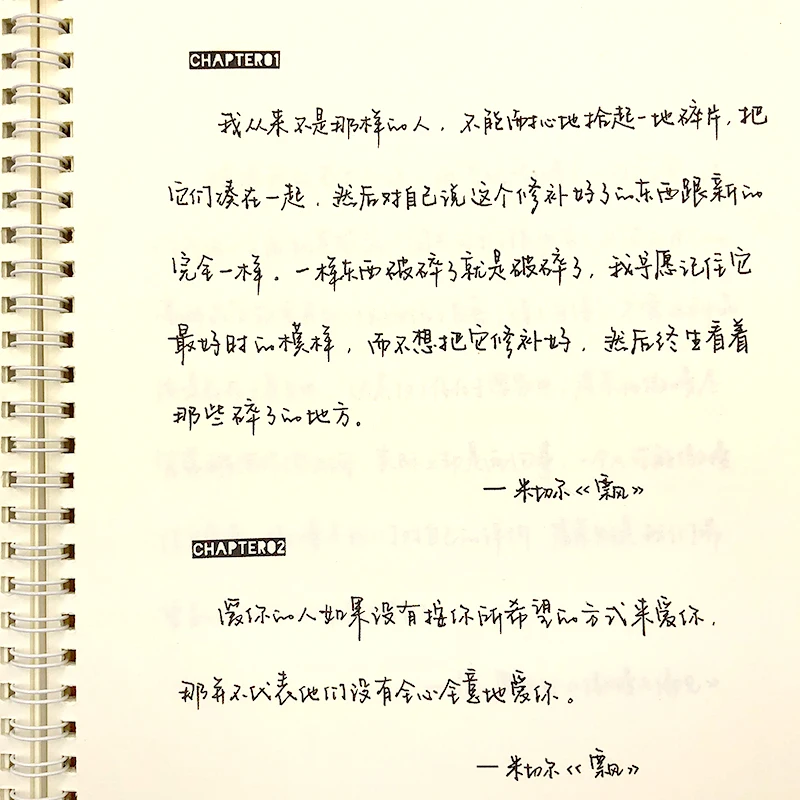 CHAPTER01
我从来不是那样的人，不能耐心地拾起一地碎片，把
它们凑在一起，然后对自己说这个修补好了的东西跟新的
完全一样。一样东西破碎了就是破碎了，我宁愿记住它
最好时的模样，而不想把它修补好，然后终生看着
那些碎了的地方。
—米切尔《飘》
CHAPTER02
爱你的人如果没有按你所希望的方式来爱你，
那并不代表他们没有全心全意地爱你。
—米切尔《飘》